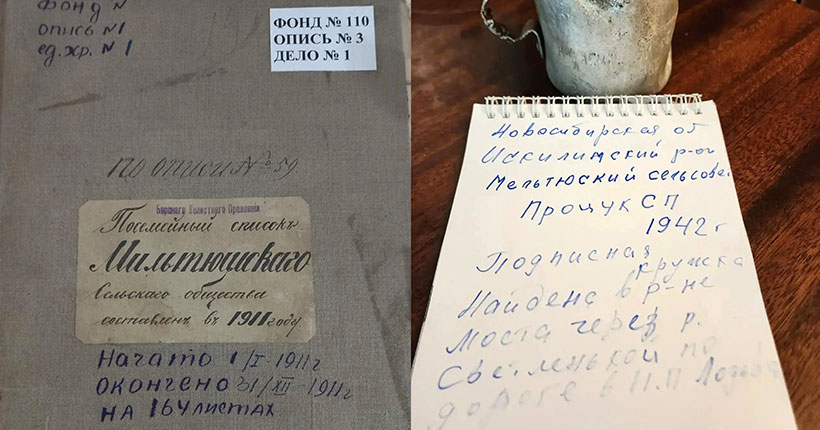 Фонд №
опись №1
ед. хр. № 1
ФОНД № 110
ОПИСЬ № 3
ДЕЛО № 1
По описи № 59.
Посемейный списокъ
Мильтюшскаго
Сельскаго общества
составленъ въ 1911 году
Начато 1/I-1911 г
окончено 31/XII-1911 г
на 164 листах
Новосибирская об
Искилимский р-он
Мельтюский сельсове
Процук СП
1942 г
Подписная
кружка
Найдена в р-не
моста через р.
по
дороге в Н.П